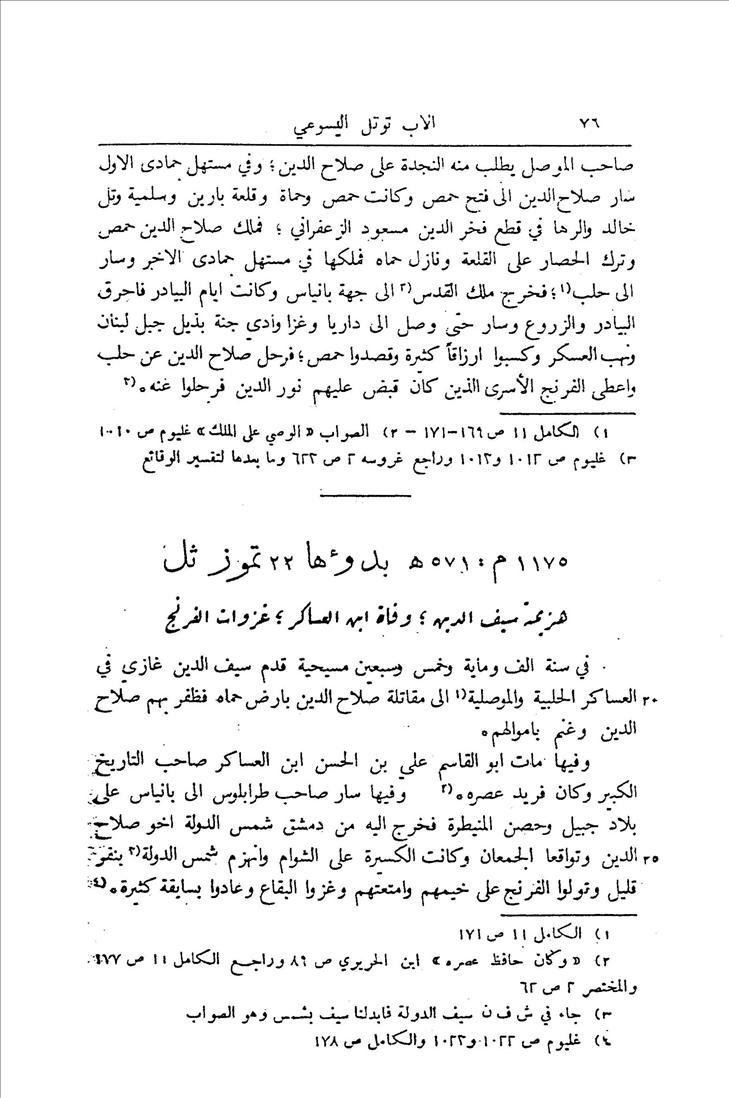 ٧٦ الاب توتل اليسوعي
صاحب الموصل يطلب منه النجدة على صلاح الدين ؛ وفي مستهل جمادى الاول
سار صلاح الدين الى فتح حمص وكانت حمص وحماة وقلعة بارين وسلمية وتل
خالد والرها في قطع فخر الدين مسعود الزعفراني ؛ فملك صلاح الدين حمص
وترك الحصار على القلعة ونازل حماه فملكها في مستهل جمادى الاخر وسار
الى حلب(١ ؛ فخرج ملك القدس(٢ الى جهة بانياس وكانت ايام البيادر فاحرق
البيادر والزروع وسار حتى وصل الى داريا وغزا وادي جنة بذيل جبل لبنان
ونهب العسكر وكسبوا ارزاقاً كثيرة وقصدوا حمص ؛ فرحل صلاح الدين عن حلب
واعطى الفرنج الأسرى الذين كان قبض عليهم نور الدين فرحلوا عنه.(٣
١) الكامل ١١ ص ١٦٩-١٧١ – ٢) الصواب « الوصي على الملك » غليوم ص ١٠١٠
٣) غليوم ص ١٠١٢ و١٠١٣ وراجع غروسه ٢ ص ٦٢٢ وما بعدها لتفسير الوقائع
١١٧٥ م = ٥٧١ هـ بدوءها ٢٢ تموز ثل
هزيمة سيف الدين ؛ وفاة ابن العساكر ؛ غزوات الفرنج
في سنة الف وماية وخمس وسبعين مسيحية قدم سيف الدين غازي في
٢٠ العساكر الحلبية والموصلية(١ الى مقاتلة صلاح الدين بارض حماه فظفر بهم صلاح
الدين وغنم باموالهم.
وفيها مات ابو القاسم علي بن الحسن ابن العساكر صاحب التاريخ
الكبير وكان فريد عصره.(٢ وفيها سار صاحب طرابلوس الى بانياس على
بلاد جبيل وحصن المنيطرة فخرج اليه من دمشق شمس الدولة اخو صلاح
٢٥ الدين وتواقعا الجمعان وكانت الكسرة على الشوام وانهزم شمس الدولة(٣ بنفر
قليل وتولوا الفرنج على خيمهم وامتعتهم وغزوا البقاع وعادوا بسايقة كثيرة.(٤
١) الكامل ١١ ص ١٧١
٢) « وكان حافظ عصره » ابن الحريري ص ٨٩ وراجع الكامل ١١ ص ١٧٧
والمختصر ٢ ص ٦٢
٣) جاء في ش ف ن سيف الدولة فابدلنا سيف بشمس وهو الصواب
٤) غليوم ص ١٠٢٢ و١٠٢٣ والكامل ص ١٧٨